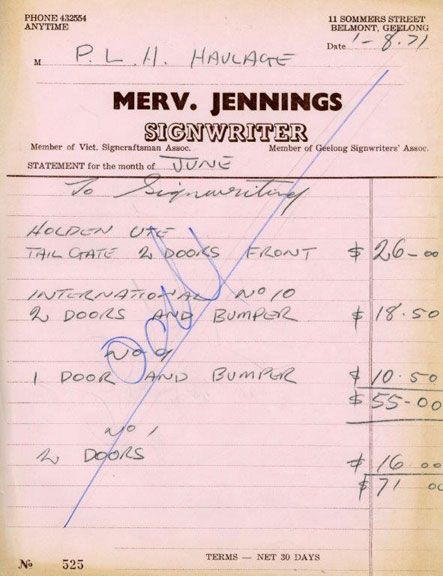 PHONE 432554
ANYTIME
11 SOMMERS STREET
BELMONT, GEELONG
Date 1-8.71
M P. L. H. HAULAGE
MERV. JENNINGS
SIGNWRITER
Member of Vict. Signcraftsman Assoc. Member of Geelong Signwriters' Assoc.
STATEMENT for the month of JUNE
To Signwriting
HOLDEN UTE
TAILGATE 2 DOORS FRONT $ 26-00
INTERNATIONAL NO 10
2 DOORS AND BUMPER $ 18.50
NO 9
1 DOOR AND BUMPER $ 10.50
$ 55-00
NO 1
2 DOORS $ 16 00
$ 71 00
No 525
TERMS — NET 30 DAYS